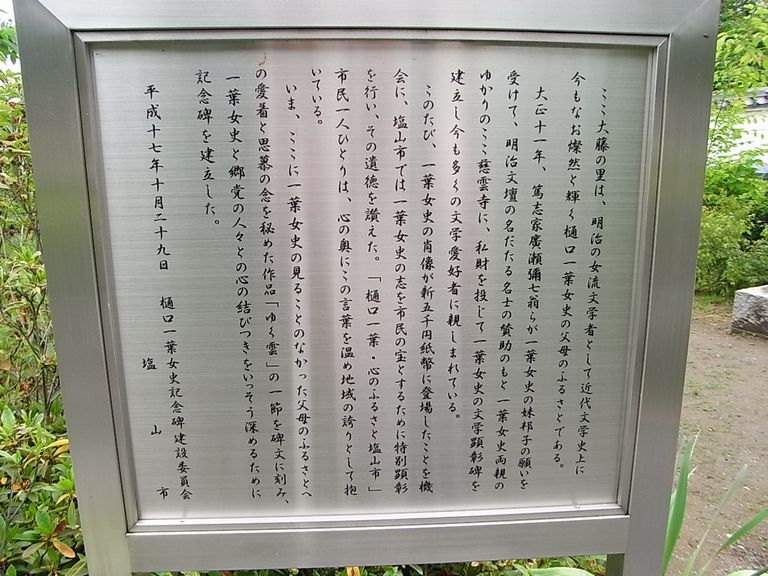 ここ大藤の里は、明治の女流文学者として近代文学史上に
今もなお燦然と輝く樋口一葉女史の父母のふるさとである。
大正十一年、篤志家廣瀬彌七翁らが一葉女史の妹邦子の願いを
受けて、明治文壇の名だたる名士の賛助のもと一葉女史両親の
ゆかりのここ慈雲寺に、私財を投じて一葉女史の文学顕彰碑を
建立し今も多くの文学愛好者に親しまれている。
このたび、一葉女史の肖像が新五千円紙幣に登場したことを機
会に、塩山市では一葉女史の志を市民の宝とするために特別顕彰
を行い、その遺徳を讃えた。「樋口一葉・心のふるさと塩山市」
市民一人ひとりは、心の奥にこの言葉を温め地域の誇りとして抱
いている。
いま、ここに一葉女史の見ることのなかった父母のふるさとへ
の愛着と思慕の念を秘めた作品「ゆく雲」の一節を碑文に刻み、
一葉女史と郷党の人々との心の結びつきをいっそう深めるために
記念碑を建立した。
平成十七年十月二十九日 樋口一葉女史記念碑建設委員会
塩山市